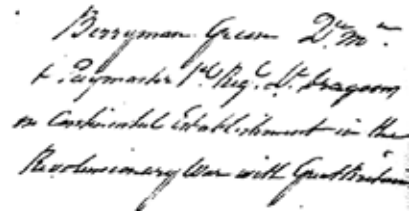 Berryman Green Qr. Mr.
& Paymaster 1st Regt. Lt. Dragoons
on Continental Establishment in the
Revolutionary War with Great Britain